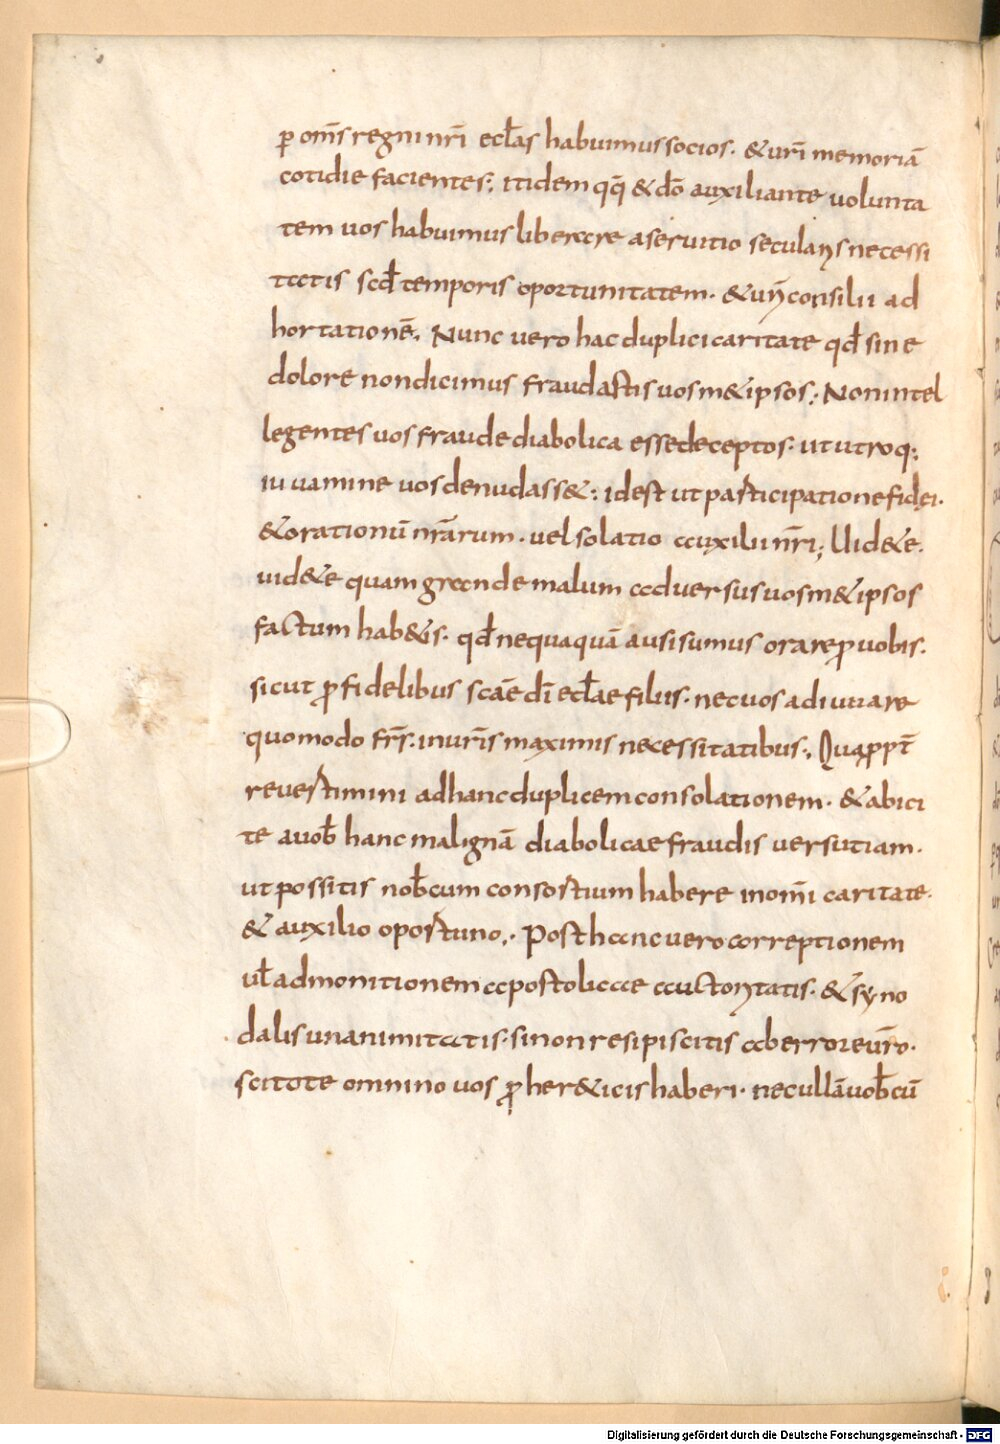 ꝑ om̄s regni nr̄i eccl̄as habuimus socios· & ur̄i memoriā
cotidie facientes; itidem qq̄ & dō auxiliante uolunta
tem uos habuimus liberare a seruitio secularis necessi
tatis scd̄ temporis oportunitatem· & uri consilii ad
hortationē. Nunc uero hac duplici caritate qd̄ sine
dolore non dicimus fraudastis uosm&ipsos; Non intel
legentes uos fraude diabolica esse deceptos· ut utroq;
iuuamine uos denudass&; idest ut participatione fidei·
& orationū nr̄arum· uel solatio auxilii nr̄i; Uid&e·
uid&e quam grande malum aduersus uosm&ipsos
factum hab&is· qd̄ nequaquā ausi sumus orare ꝓ uobis·
sicut ꝓ fidelibus scāe dī eccl̄ae filiis· nec uos adiuuare
quomodo fr̄s· in ur̄is maximis necessitatibus; Quaꝓpt̄
reuestimini ad hanc duplicem consolationem· & abici
te a uob̄ hanc malignā diabolicae fraudis uersutiam·
ut possitis nob̄cum consortium habere in omī caritate·
& auxilio oportuno;· Post hanc uero correptionem
ul̄ admonitionem apostolicae auctoritatis· & syno
dalis unanimitatis· si non resipiscitis ab errore ur̄o·
scitote omnino uos ꝓ her&icis haberi· nec ullā uob̄cū
Digitalisierung gefördert durch die Deutsche Forschungsgemeinschaft - DFG